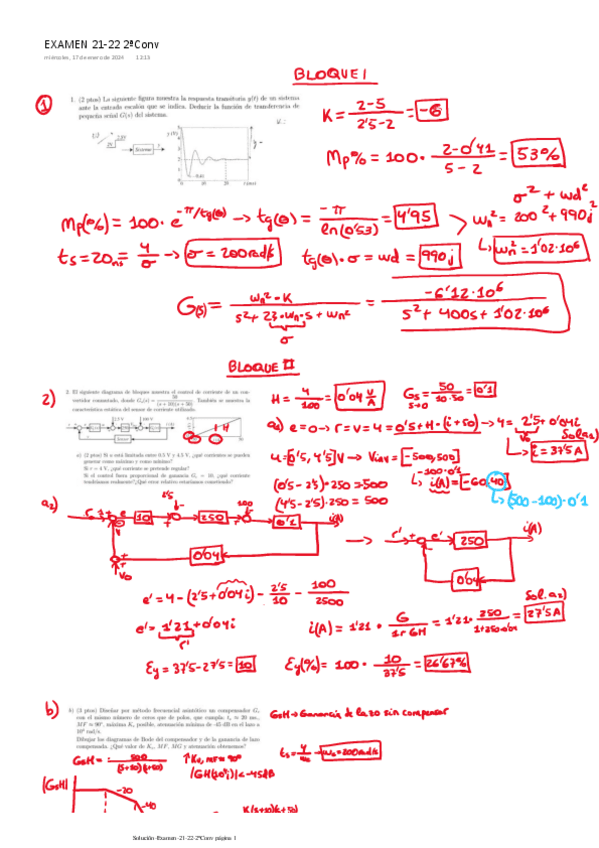 EXAMEN 21-22 2ªConv
miércoles, 17 de enero de 2024 12:13
BLOQUE I
1
1. (2 ptos) La siguiente figura muestra la respuesta transitoria y(t) de un sistema
ante la entrada escalón que se indica. Deducir la función de transferencia de
pequeña señal G(s) del sistema.
K = 2-5 / 2'5-2 = -6
Mp% = 100 · 2-0'41 / 5-2 = 53%
Mp(%) = 100 · e^-π/tg(θ) → tg(θ) = -π / ln(0'53) = 4'95
σ² + wd²
wn² = 200² + 990j²
wn² = 1'02·10⁶
ts = 20ms = 4/σ → σ = 200rad/s
tg(θ)·σ = wd = 990j
G(s) = wn²·K / s²+2ζ·wn·s+wn² = -6'12·10⁶ / s²+400s+1'02·10⁶
σ
BLOQUE II
2)
2. El siguiente diagrama de bloques muestra el control de corriente de un con-
vertidor conmutado, donde
También se muestra la
característica estática del sensor de corriente utilizado.
H = 4/100 = 0'04 V/A
Gs s→0 = 50/10·50 = 0'1
a) (2 ptos) Si u está limitada entre 0.5 V y 4.5 V, ¿qué corrientes se pueden
generar como máximo y como mínimo?
Si r = 4 V, ¿qué corriente se pretende regular?
Si el control fuera proporcional de ganancia Gc = 10, ¿qué corriente
tendríamos realmente? ¿Qué error relativo estaríamos cometiendo?
a₁) e=0 → r=v=4=0'5+H·(i+50) → 4= 2'5+0'04i
Vo
Sol a₁)
i = 37'5A
u=[0'5, 4'5]V → Vinv = [-500,500]
-100·0'1
(0'5-2'5)·250 = 500
i(A) = [-60,40]
(4'5-2'5)·250 = 500
(500-100)·0'1
a₂)
2'5
100
10
250
0'1
i(A)
0'04
Vo
r'
e'
250
i(A)
0'04
e' = 4-(2'5+0'04i) - 2'5/10 - 100/2500
e' = 1'21+0'04i
r'
i(A) = 1'21 · G / 1+GH = 1'21 · 250 / 1+250·0'04 = 27'5A
Sol. a₂)
Ey = 37'5-27'5 = 10
Ey(%) = 100 · 10/37'5 = 26'67%
b)
b) (3 ptos) Diseñar por método frecuencial asintótico un compensador Gc
con el mismo número de ceros que de polos, que cumpla: ts ≈ 20 ms,
MF ≈ 90°, máxima Kv posible, atenuación mínima de -45 dB en el lazo a
10⁴ rad/s.
Dibujar los diagramas de Bode del compensador y de la ganancia de lazo
compensada. ¿Qué valor de Kv, MF, MG y atenuación obtenemos?
GoH → Ganancia de lazo sin compensar
ts = 4/ws → ws = 200rad/s
GoH = 500 / (s+20)(s+50)
↑Kv, MF = 90°
|GH(10⁴j)| < -45dB
|GoH|
-20
-40
K(s+20)(s+50)
Solución-Examen-21-22-2ªConv página 1